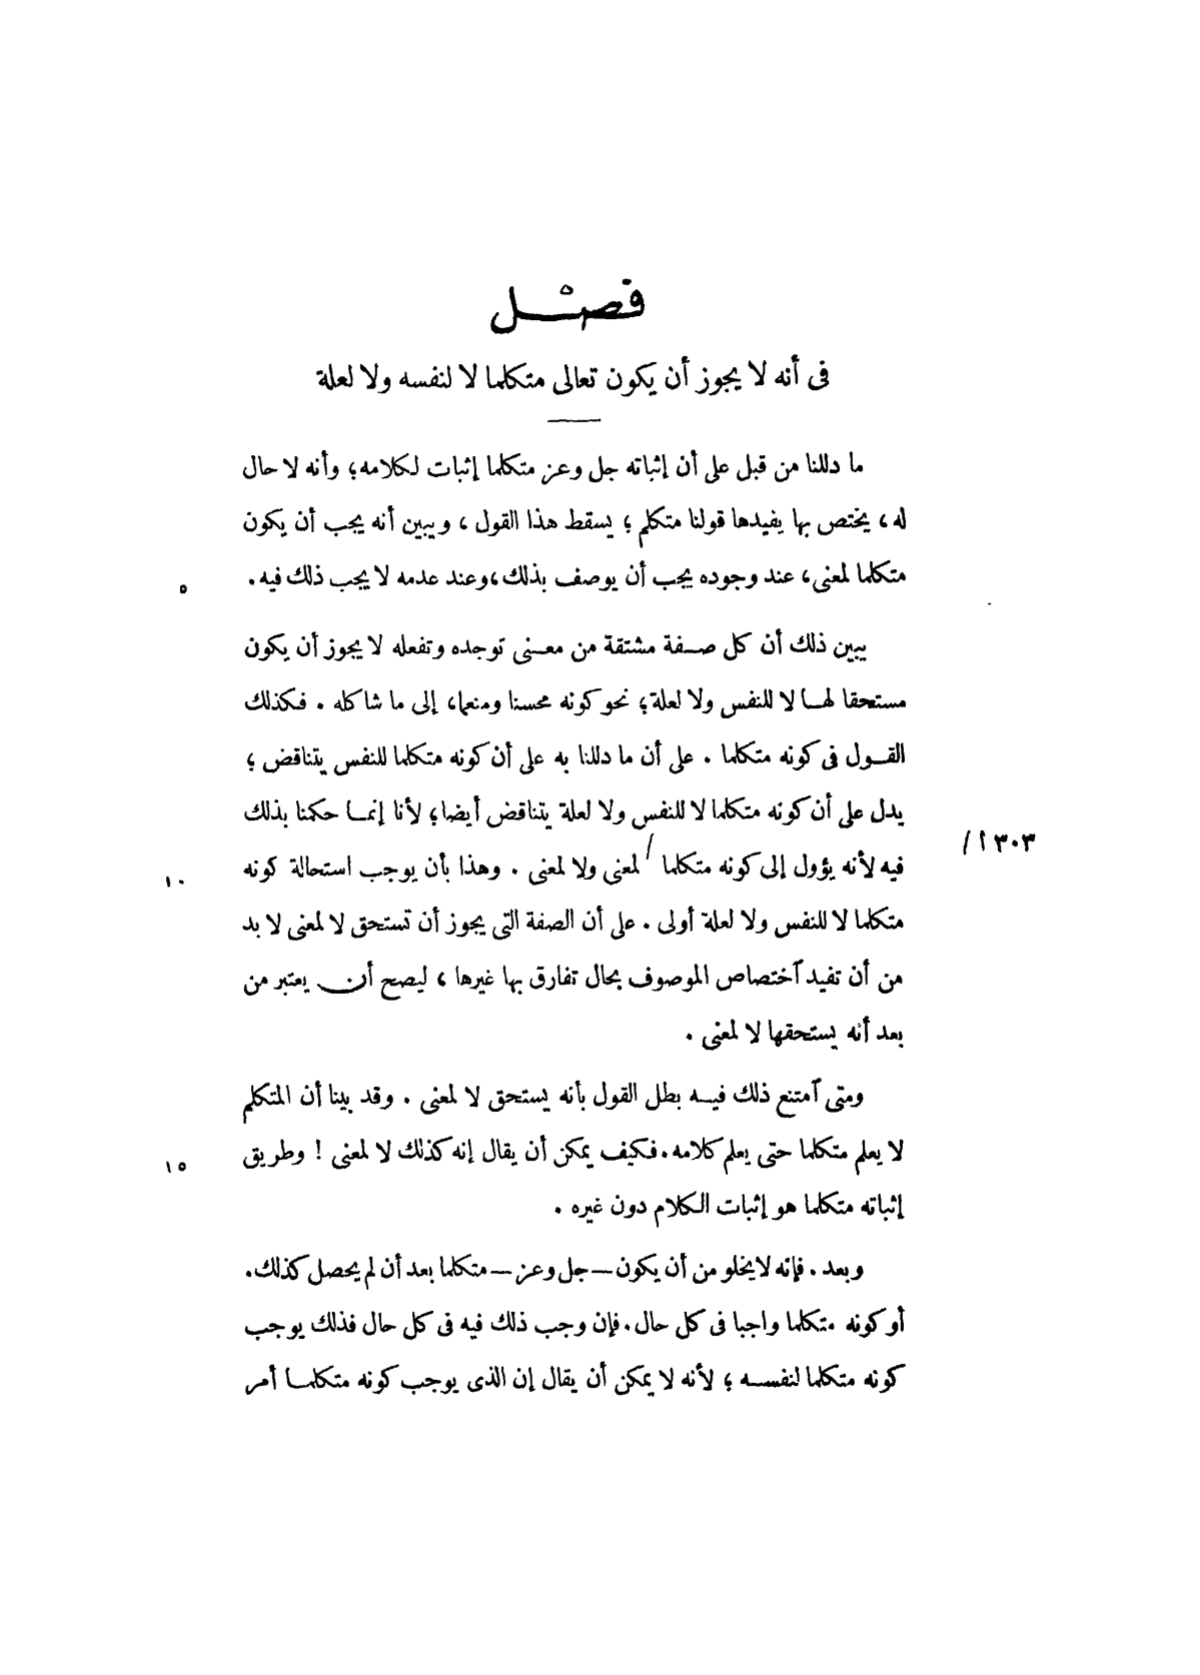 فصل
فى أنه لا يجوز أن يكون تعالى متكلما لا لنفسه ولا لعلة
ما دللنا من قبل على أن إثباته جل وعز متكلما إثبات لكلامه؛ وأنه لا حال
له، يختص بها يفيدها قولنا متكلم؛ يسقط هذا القول، ويبين أنه يجب أن يكون
متكلما لمعنى، عند وجوده يجب أن يوصف بذلك، وعند عدمه لا يجب ذلك فيه.
٥
يبين ذلك أن كل صفة مشتقة من معنى توجده وتفعله لا يجوز أن يكون
مستحقا لها لا للنفس ولا لعلة؛ نحو كونه محسنا ومنعما، إلى ما شاكله. فكذلك
القول فى كونه متكلما. على أن ما دللنا به على أن كونه متكلما للنفس يتناقض؛
يدل على أن كونه متكلما لا للنفس ولا لعلة يتناقض أيضا؛ لأنا إنما حكمنا بذلك
٣٠٣ أ /
فيه لأنه يؤول إلى كونه متكلما / لمعنى ولا لمعنى. وهذا بأن يوجب استحالة كونه
١٠
متكلما لا للنفس ولا لعلة أولى. على أن الصفة التى يجوز أن تستحق لا لمعنى لا بد
من أن تفيد آختصاص الموصوف بحال تفارق بها غيرها، ليصح أن يعتبر من
بعد أنه يستحقها لا لمعنى.
ومتى آمتنع ذلك فيه بطل القول بأنه يستحق لا لمعنى. وقد بينا أن المتكلم
لا يعلم متكلما حتى يعلم كلامه. فكيف يمكن أن يقال إنه كذلك لا لمعنى! وطريق
١٥
إثباته متكلما هو إثبات الكلام دون غيره.
وبعد. فإنه لا يخلو من أن يكون — جل وعز — متكلما بعد أن لم يحصل كذلك.
أو كونه متكلما واجبا فى كل حال. فإن وجب ذلك فيه فى كل حال فذلك يوجب
كونه متكلما لنفسه؛ لأنه لا يمكن أن يقال إن الذى يوجب كونه متكلما أمر